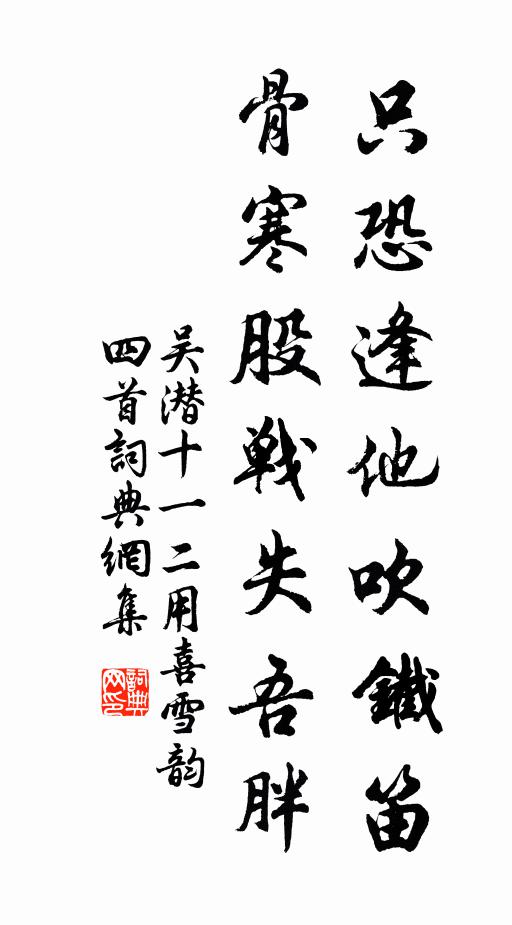 只恐逢他吹鐵笛
骨寒股戰失吾胖
吴潜十一二用喜雪韵
四首詞典網集
詞典
网印